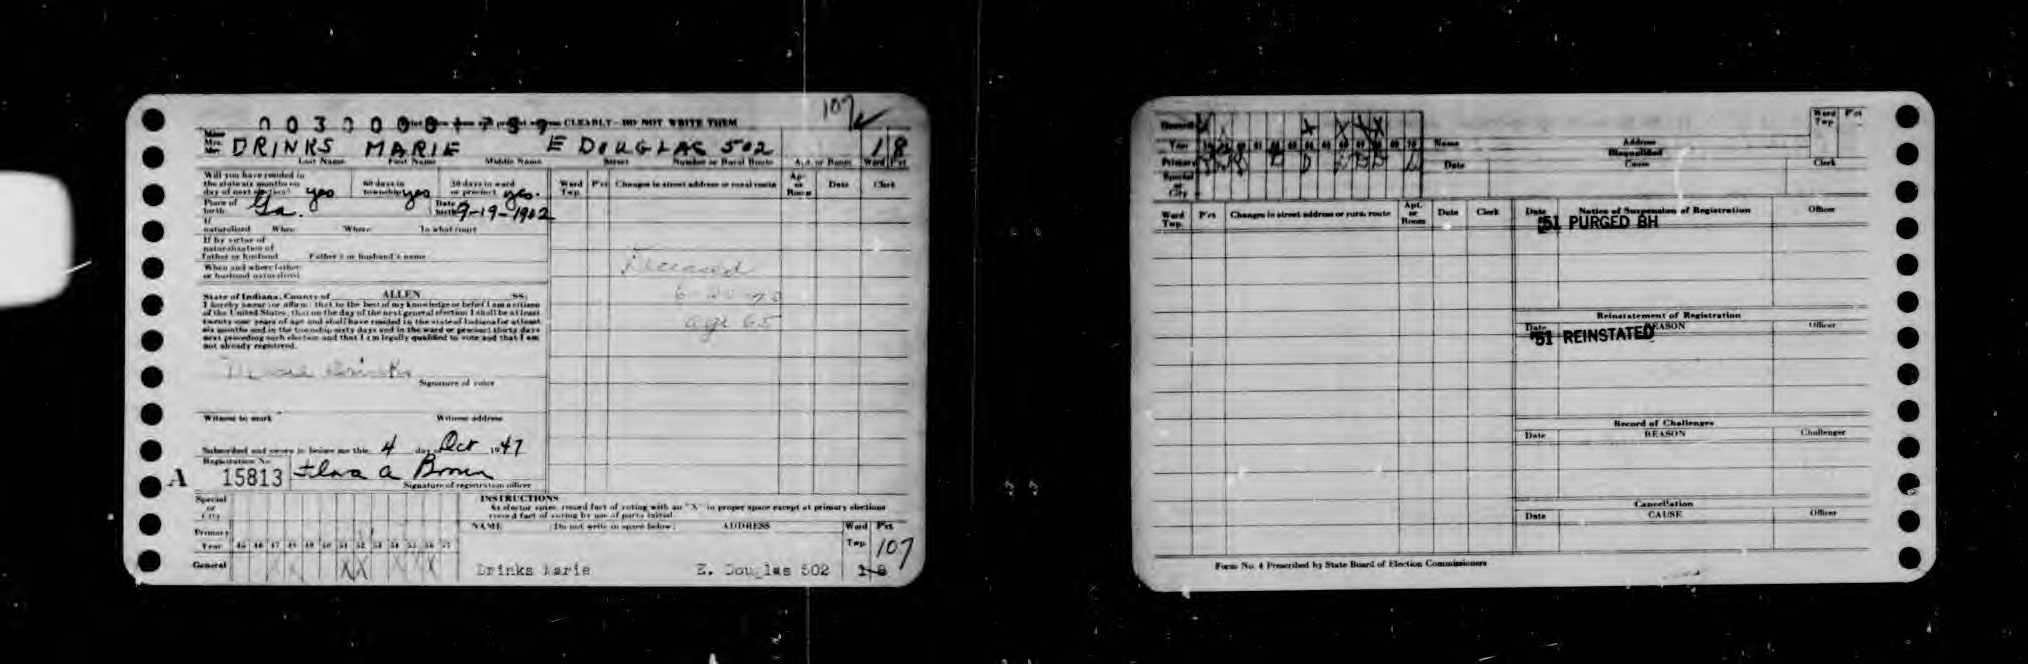 003
107
CLEARLY - DO NOT WRITE THEM
Miss
Mrs.
Mr.
DRINKS MARIE E DOUGLAS 502 1 8
Last Name First Name Middle Name Street Number or Rural Route Apt. or Room Ward Pct
Will you have resided in
the state six months on
day of next election? yes
60 days in
township yes
30 days in ward
or precinct yes.
Place of
birth Ga.
Date
birth 9-19-1902
If
naturalized When Where In what court
If by virtue of
naturalization of
Father or husband Father's or husband's name
When and where father
or husband naturalized
State of Indiana, County of ALLEN SS:
I hereby swear (or affirm) that to the best of my knowledge or belief I am a citizen
of the United States; that on the day of the next general election I shall be at least
twenty-one years of age and shall have resided in the state of Indiana for at least
six months and in the township sixty days and in the ward or precinct thirty days
next preceding such election and that I am legally qualified to vote and that I am
not already registered.
Marie Drinks
Signature of voter
Witness to mark Witness address
Subscribed and sworn to before me this 4 day Oct 1947
Registration No.
A 15813
Signature of registration officer
Ward
Twp.
P'ct
Changes in street address or rural route
Apt.
or
Room
Date
Clerk
Deceased
age 65
Special
or
City
Primary
Year 45 46 47 48 49 50 51 52 53 54 55 56 57
General
INSTRUCTIONS
As elector votes, record fact of voting with an "X" in proper space except at primary elections
record fact of voting by use of party initial
NAME (Do not write in space below) ADDRESS
Ward
Twp.
P'ct
107
Drinks Marie E. Douglas 502 1-8
General
Year
Primary
Special
or
City
Name Address
Disqualified
Date Cause Clerk
Ward
Twp.
P'ct
Ward
Twp.
P'ct
Changes in street address or rural route
Apt.
or
Room
Date
Clerk
Date Notice of Suspension of Registration Officer
'51 PURGED BH
Reinstatement of Registration
Date REASON Officer
'51 REINSTATED
Record of Challenges
Date REASON Challenger
Cancellation
Date CAUSE Officer
Form No. 4 Prescribed by State Board of Election Commissioners